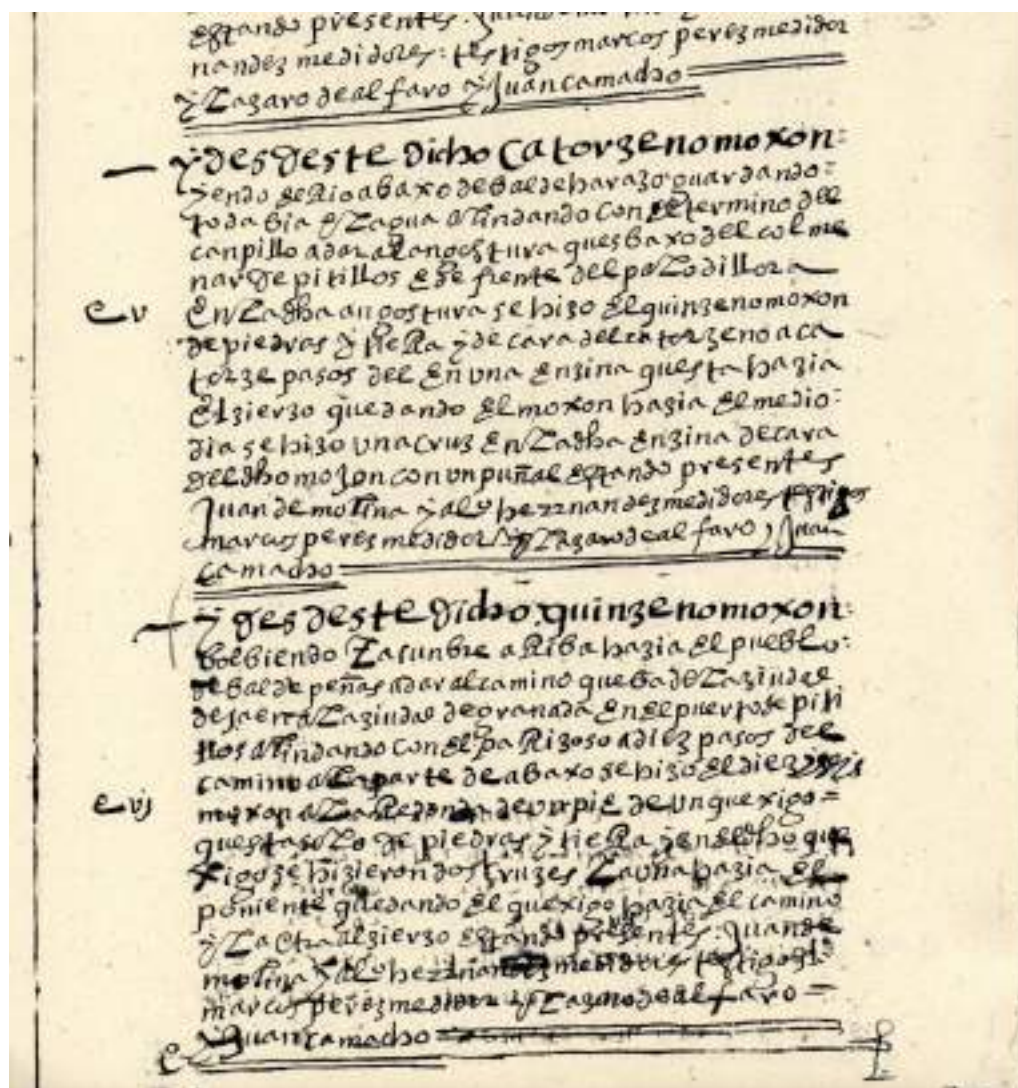 estando presentes Juan
nandez medidores: testigos marcos perez medidor
y Lazaro de alfaro y Juan camacho
— y desdeste dicho Catorzeno moxon:
yendo el Rio abaxo de baldeharazo guardando:
toda bia el Lagua alindando con el termino del
canpillo a dar al angostura ques baxo del colme
nar de pitillos e de frente del pozo dillora
e v En La dha angostura se hizo el quinzeno moxon
de piedras y tieRa y de cara del catorzeno a ca
torze pasos del en una enzina questa hazia
el zierzo quedando el moxon hazia el medio:
dia se hizo una cruz en La dha enzina de cara
del dho mojon con un puñal estando presentes
Juan de molina y alº herrnandez medidores testigos
marcos perez medidor y Lazaro de alfaro y Juan
camacho
— y desdeste dicho quinzeno moxon:
bolbiendo La cunbre aRiba hazia el pueblo:
de baldepeñas a dar al camino que ba de La ziudad
de jaen a La ziudad de granada en el puerto de piti
llos alindando con el paRizoso a diez pasos del
camino a La parte de abaxo se hizo el diez y seis
e vj moxon a La Redonda de un pie de un quexigo =
questa solo de piedras y tieRa y en el dho que
xigo se hizieron dos cruzes La una hazia el
poniente quedando el quexigo hazia el camino
y La otra al zierzo estando presentes: Juan de
molina y alº herrnandez medidores testigos
marcos perez medidor y Lazaro de alfaro =
y Juan camacho